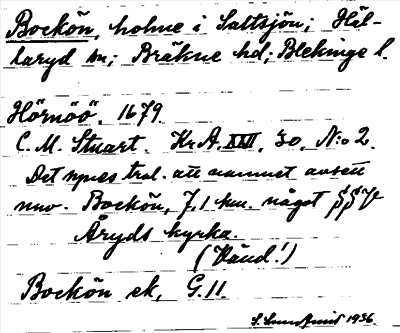 Bockön, holme i Saltsjön; Häl-
laryd sn; Bräkne hd; Blekinge l.
Hörnöö. 1679.
C. M. Stuart. Kr A. XXII, 30, N:o 2.
Det synes trol. att namnet avsett
nuv. Bockön, 7,1 km. något
Åryds kyrka.
(Vänd!)
Bockön ek, G.11.
1936